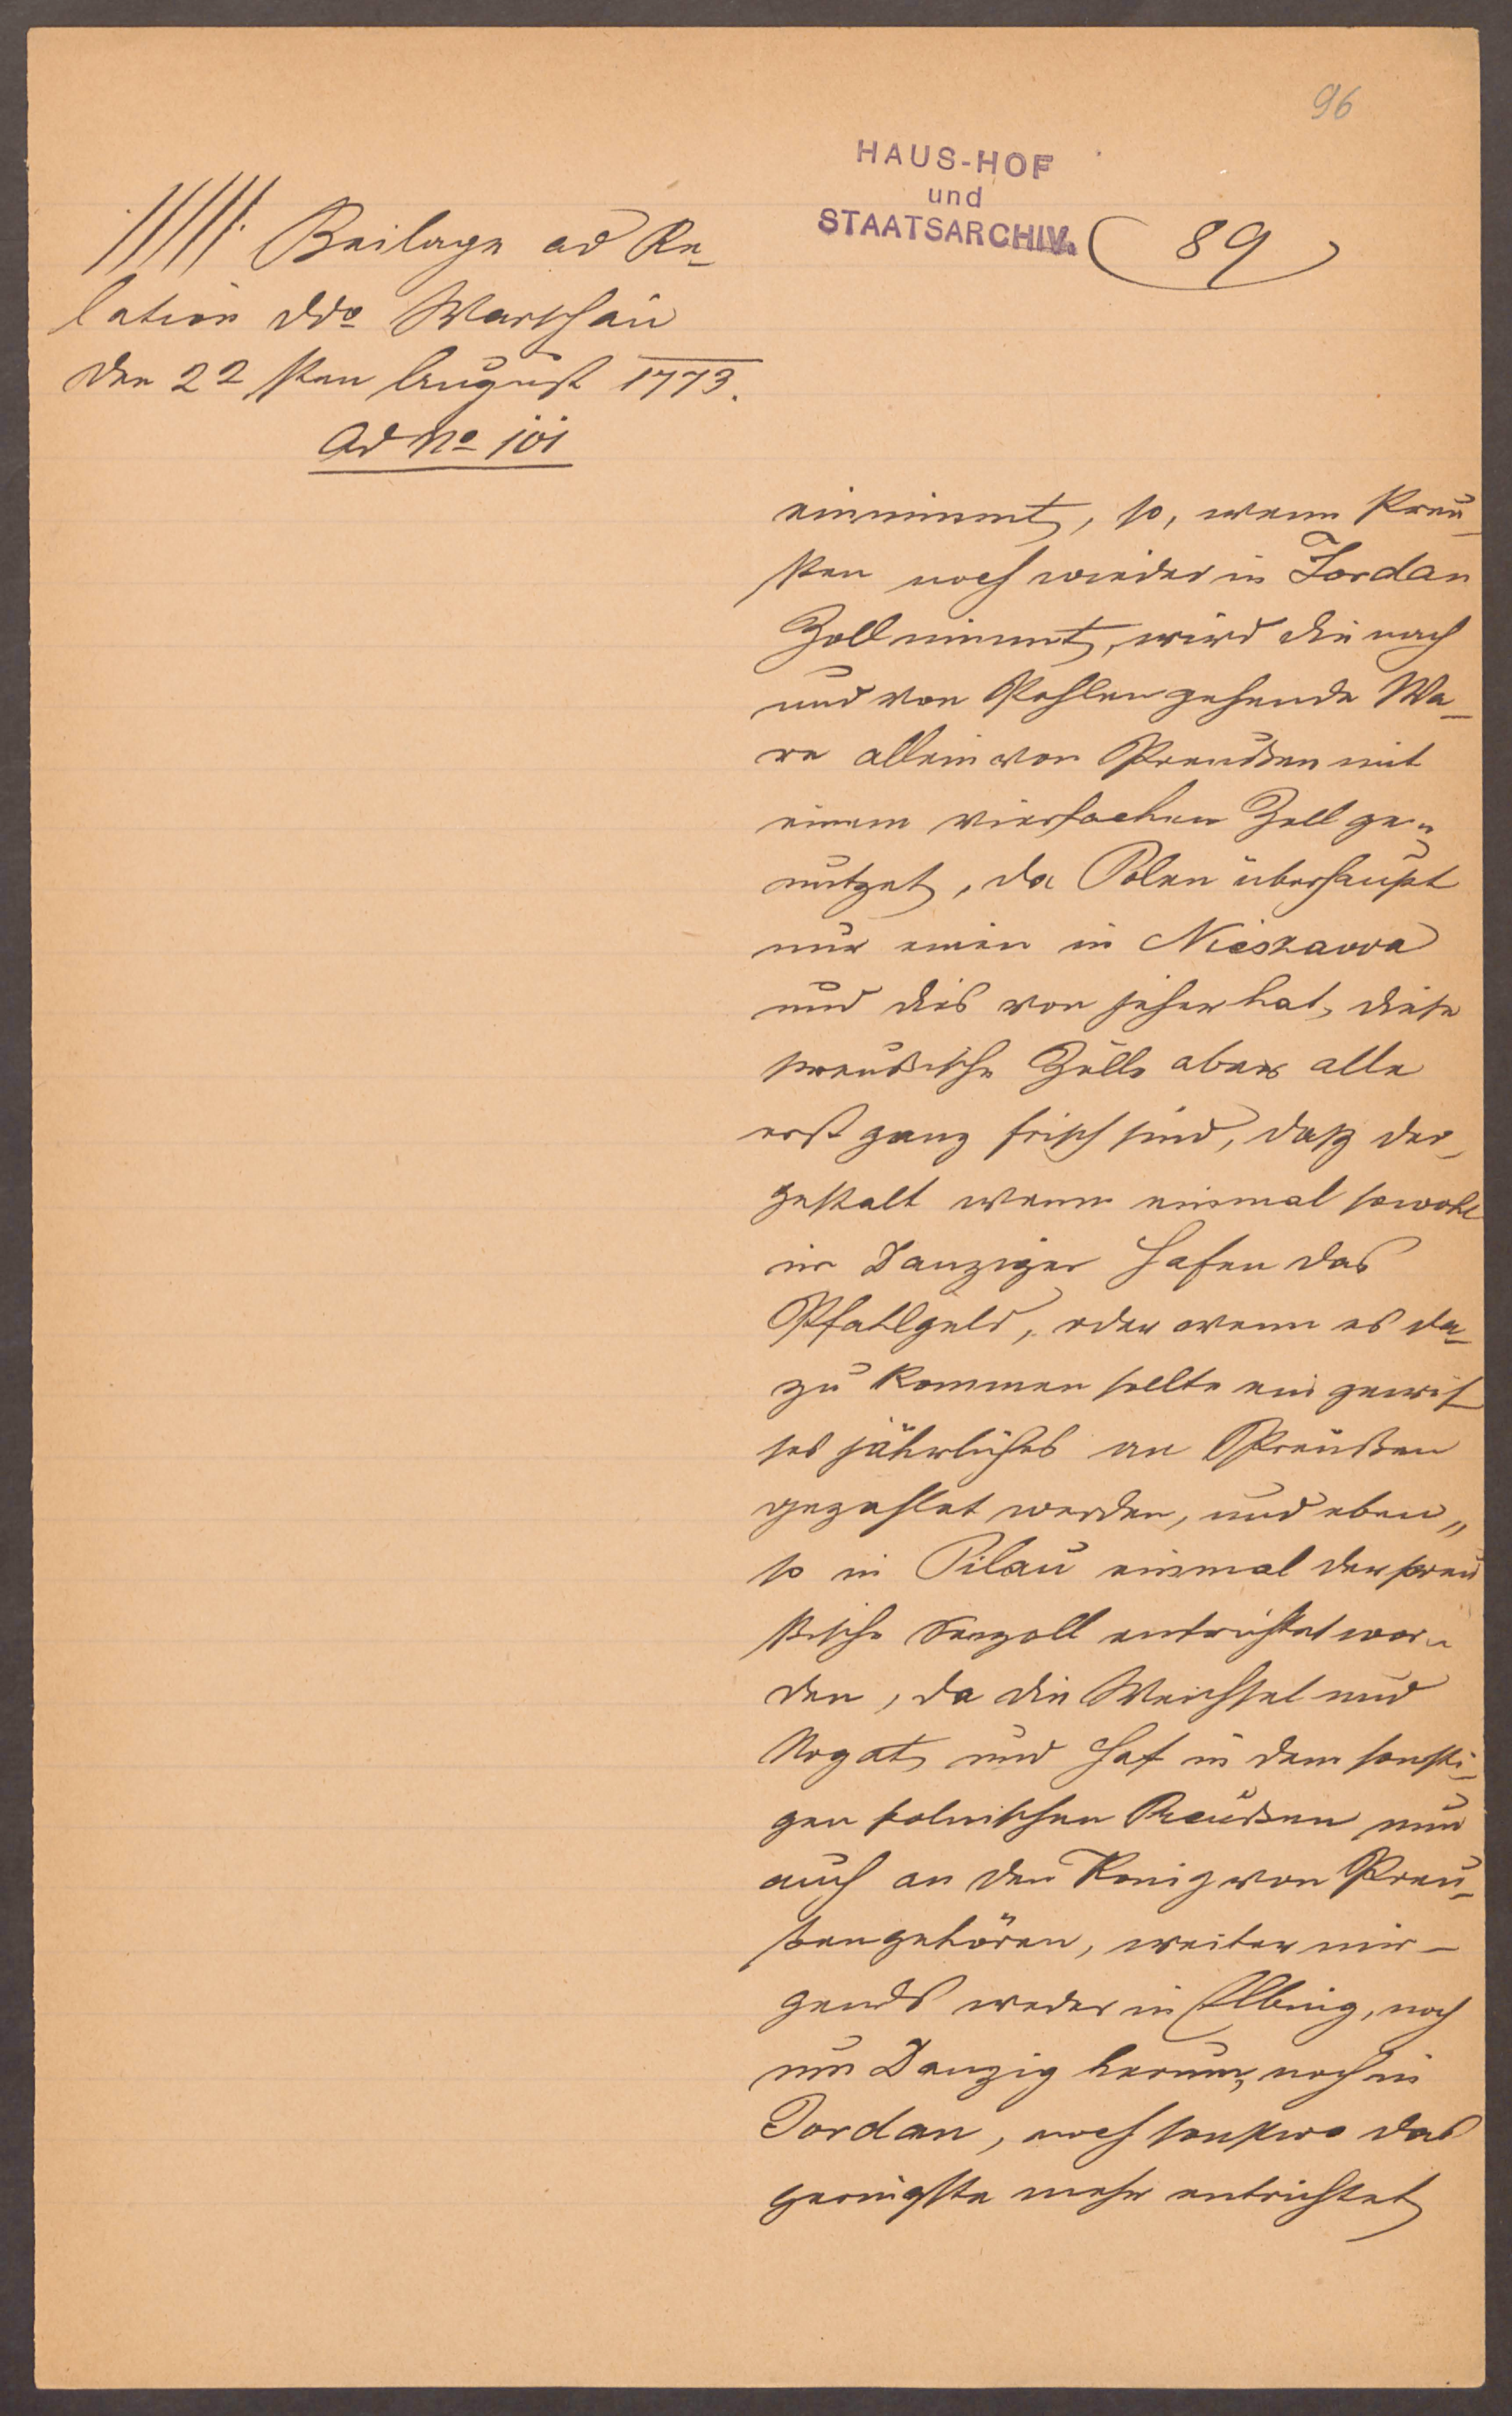 96
HAUS-HOF
und
STAATSARCHIV.
89
Beilage ad Re-
lation ddo Warschau
den 22 sten August 1773.
Ad No 101
einnimmt, so, wenn Preu-
ßen noch wieder in Jordan
Zoll nimmt, wird die nach
und von Pohlen gehende Wa-
re allein von Preußen mit
einem vierfachen Zoll ge-
nutzet, da Polen überhaupt
nur einen in Nieszawa
und dies von jeher hat, diese
preußische Zölle aber alle
erst ganz frisch sind, daß der-
gestalt wenn einmal sowohl
im Danziger Hafen das
Pfahlgeld, oder wenn es da-
zu kommen sollte ein gewis-
ses jährliches an Preußen
gezahlet werden, und eben„
so in Pilau einmal der preu
ßische Seezoll entrichtet wor-
den, da die Weichsel und
Nogat und Haf in dem sonsti-
gen polnischen Preußen nun
auch an den König von Preu-
ßen gehören, weiter nir-
gends weder in Elbing, noch
um Danzig herum, noch in
Jordan, noch sonstwo das
geringste mehr entrichtet